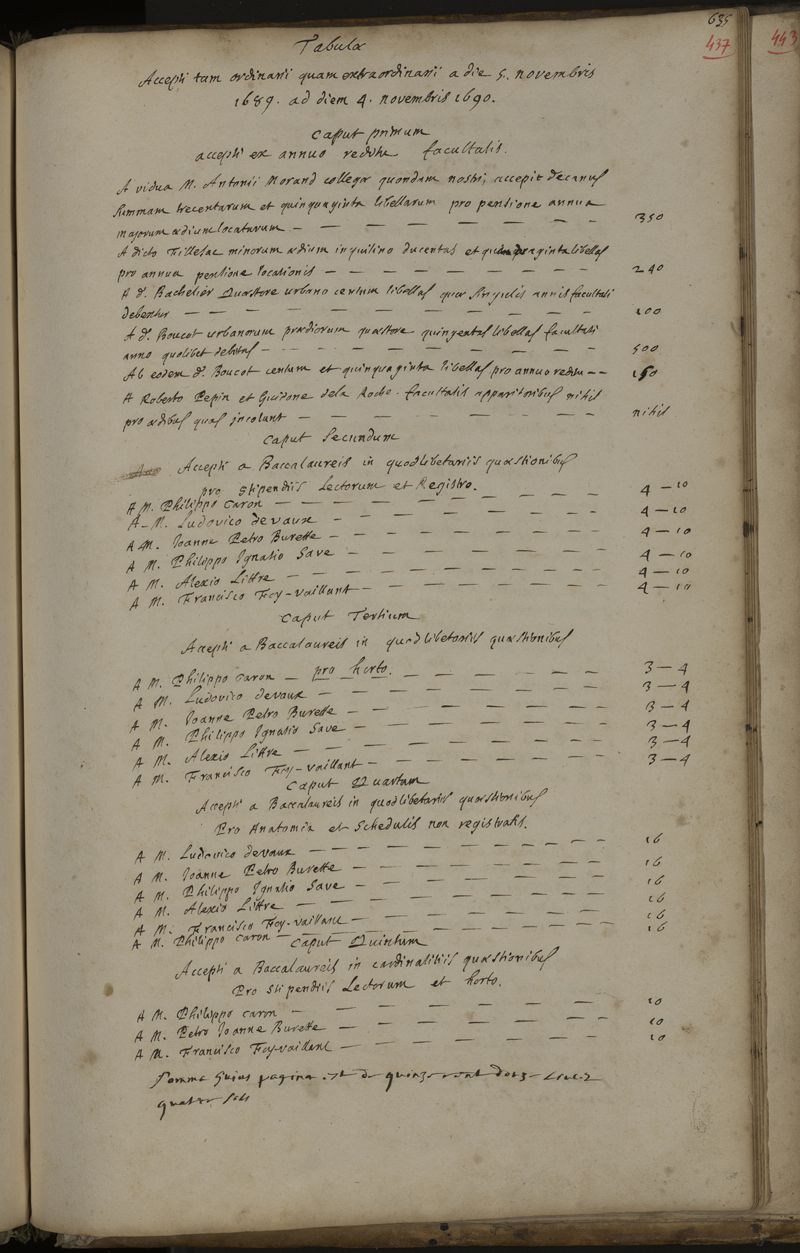 635
437
443
Tabula
Accepti tam ordinarii quam extraordinarii a die 5. novembris
1689. ad diem 4. novembris 1690.
Caput primum
accepti ex annuo reditu facultatis.
A vidua M. Antonii Morand collegæ quondam nostri, accepit decanus
summam trecentarum et quinquaginta libellarum pro pensione annua
majorum ædium locatarum — — — — — — — — 350
A dicto Fillesac minorum ædium inquilino ducentas et quadraginta libellas
pro annua pensione locationis — — — — — — — — 240
A d. Bachelier Quæstore urbano centum libellas quæ singulis annis facultati
debentur — — — — — — — — — — — 100
A d. Boucot urbanorum prædiorum quæstore quingentas libellas facultati
anno quolibet debitas — — — — — — — — — 500
Ab eodem d. Boucot centum et quinquaginta libellas pro annuo reditu — — 150
A Roberto Pepin et Guidone dela Roche facultatis apparitoribus nihil
pro ædibus quas incolunt — — — — — — — — nihil
Caput Secundum
Accepti a Baccalaureis in quodlibetariis quæstionibus
pro stipendiis Lectorum et Registro.
A M. Philippo Caron — — — — — — — 4 — 10
A M. Ludovico devaux — — — — — — — 4 — 10
A M. Joanne Petro Burette — — — — — — — 4 — 10
A M. Philippo Ignatio Save — — — — — — — 4 — 10
A M. Alexio Littre — — — — — — — 4 — 10
A M. Francisco Foy-vaillant — — — — — — — 4 — 10
Caput Tertium
Accepti a Baccalaureis in quodlibetariis quæstionibus
pro horto.
A M. Philippo Caron — — — — — — — 3 — 4
A M. Ludovico devaux — — — — — — — 3 — 4
A M. Joanne Petro Burette — — — — — — — 3 — 4
A M. Philippo Ignatio Save — — — — — — — 3 — 4
A M. Alexio Littre — — — — — — — 3 — 4
A M. Francisco Foy-vaillant — — — — — — — 3 — 4
Caput Quartum
Accepti a Baccalaureis in quodlibetariis quæstionibus
Pro Anatomia et Schedulis non registratis.
A M. Ludovico devaux — — — — — — — 16
A M. Joanne Petro Burette — — — — — — — 16
A M. Philippo Ignatio Save — — — — — — — 16
A M. Alexio Littre — — — — — — — 16
A M. Francisco Foy-vaillant — — — — — — — 16
A M. Philippo Caron — — — — — — — 16
Caput Quintum
Accepti a Baccalaureis in cardinalitiis quæstionibus
Pro stipendiis Lectorum et horto.
A M. Philippo Caron — — — — — — — 10
A M. Petro Joanne Burette — — — — — — — 10
A M. Francisco Foy-vaillant — — — — — — — 10
Somma hujus pagina est de quinze cent livres
quatre sols